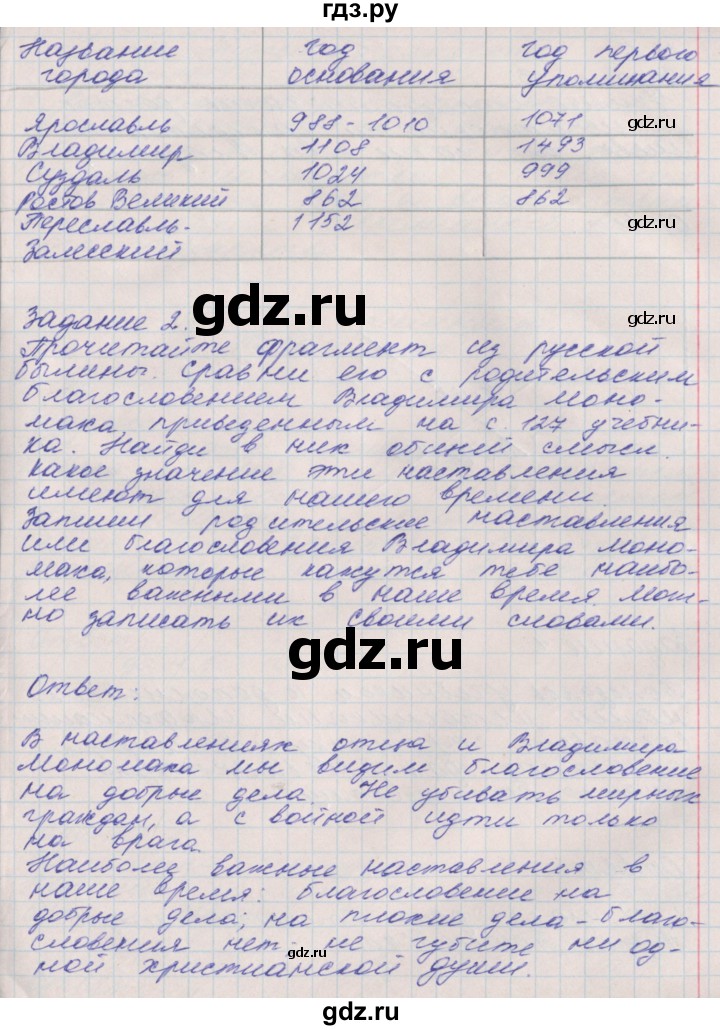 гдз.ру
Название год год первого
города основания упоминания
Ярославль 988-1010 1071 gdz.ru
Владимир 1108 1493
Суздаль 1024 999
Ростов Великий 862 862
Переславль- 1152 gdz.ru
Залесский
gdz.ru
Задание 2.
Прочитайте фрагмент из русской
былины. Сравни его с родительским
благословением Владимира Моно-
маха, приведенным на с. 127 учебни-
ка. Найди в них общий смысл.
Какое значение эти наставления
имеют для нашего времени.
Запиши родительские наставления
или благословения Владимира Моно-
маха, которые кажутся тебе наибо-
лее важными в наше время. Мож-
но записать их своими словами.
gdz.ru
Ответ:
В наставлениях отца и Владимира
Мономаха мы видим благословение
на добрые дела. Не убивать мирных
граждан, а с войной идти только
на врага.
Наиболее важные наставления в
наше время: благословение на
добрые дела; на плохие дела - благо-
словения нет. не губите ни од-
gdz.ru
ной христианской души.
gdz.ru